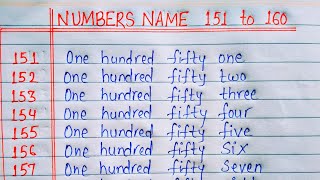 NUMBERS NAME 151 to 160
151 One hundred fifty one
152 One hundred fifty two
153 One hundred fifty three
154 One hundred fifty four
155 One hundred fifty five
156 One hundred fifty Six
157 One hundred fifty Seven